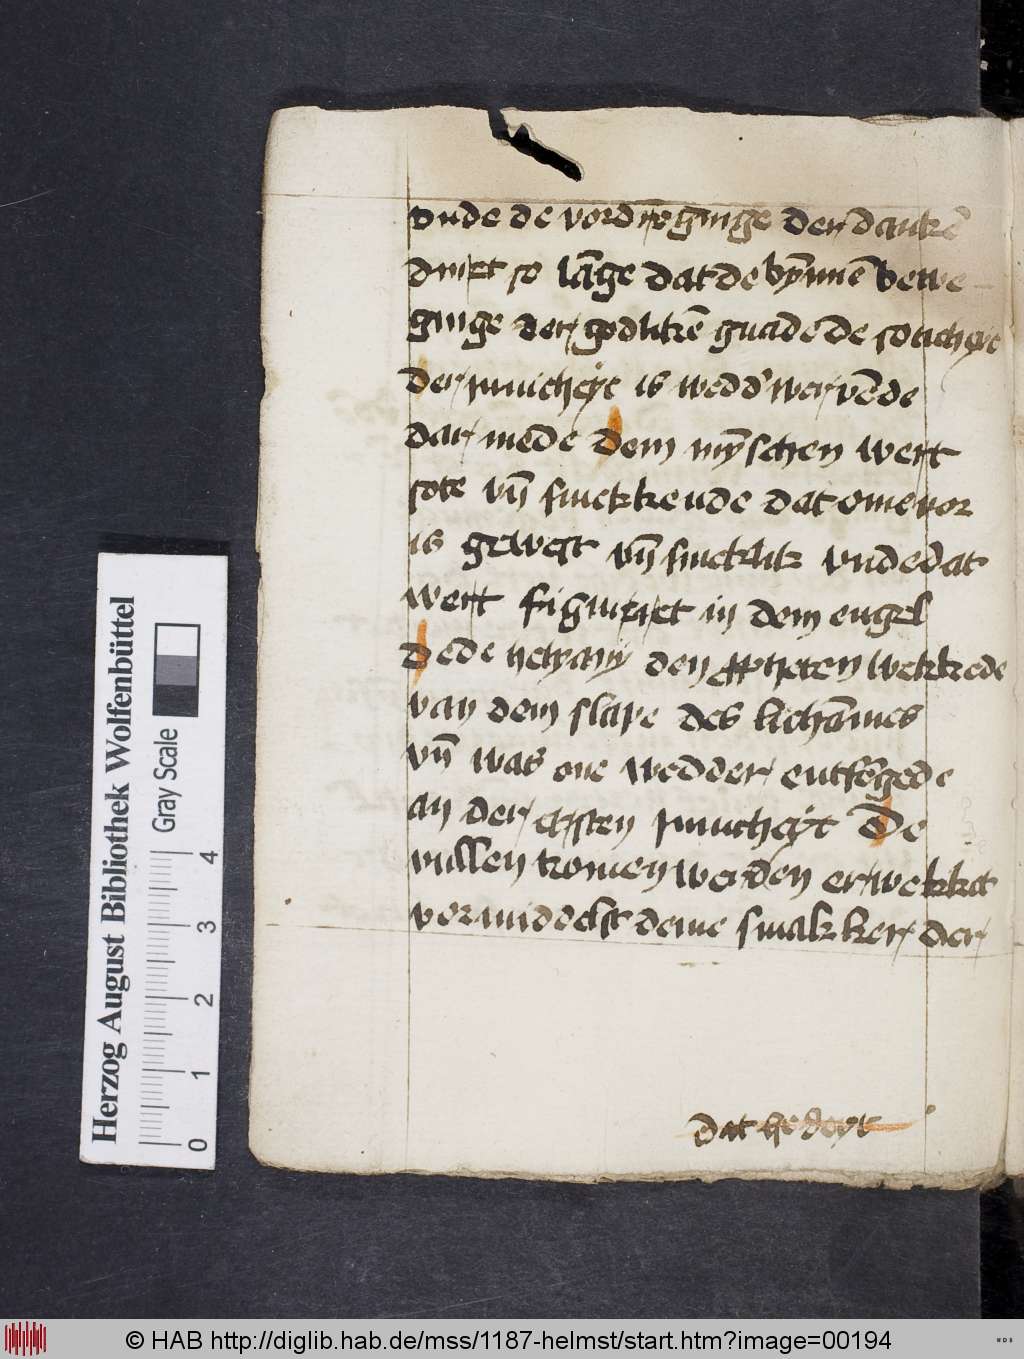 vnde de vordroginge den dancke̅
duret so la̅ge dat de by̅nne̅ bewe
ginge der godlike̅ gnade de soticheyt
der innicheyt is wedd'wer ve̅de
dar mede dem my̅schen wert
sote vn̅ smekkende dat ome vor
is gewest vn̅ smeklik vnde dat
wert figureret in dem engel
dede den ppheten wekkede
van dem slape des licha̅mes
vn̅ was one wedder entfe̅gede
an der ersten innicheyt De
vullen komen werden erwekket
vormiddelst deme smakker der
dat he deyt
Herzog August Bibliothek Wolfenbüttel
Gray Scale
0 1 2 3 4
© HAB http://diglib.hab.de/mss/1187-helmst/start.htm?image=00194